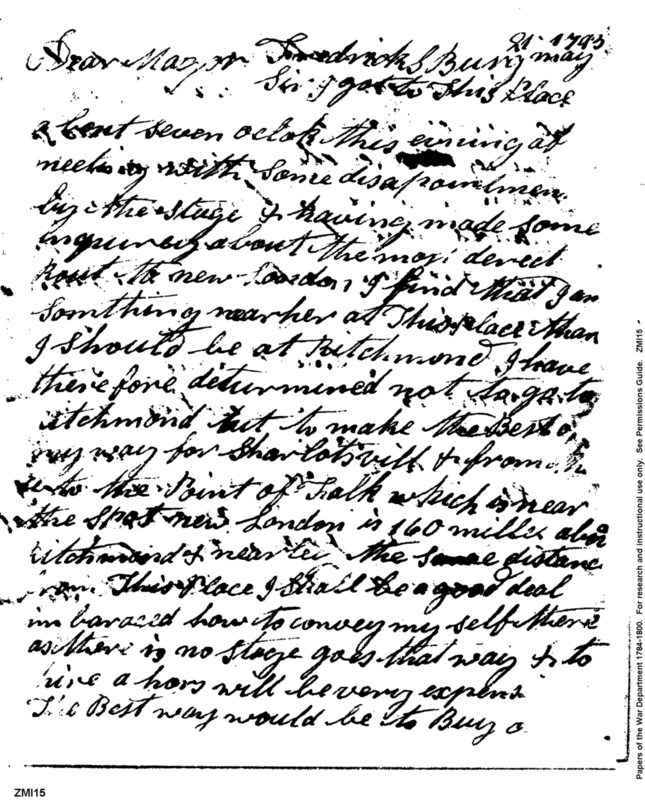 21 1793
Dear Mager Fredricks Burg may
Sir I got to This Place
about seven oclok this evining at
meeting with Some disapointmen
by the stage & having made some
inquirey about the most derect
Rout to new London I find that I am
Somthing nearher at This place than
I Should be at Ritchmond I have
therefore determined not to go to
Ritchmond but to make the Best of
my way for Sharlotsvill & from
to the Point of Falk which is near
the Spot new London is 160 milles abov
Ritchmond & nearley the same distanc
from This Place I Shall be a good deal
imbarased how to convey my self there
as there is no Stage goes that way & to
hire a hors will be very expens
The Best way would be to Buy a
ZMI15
Papers of the War Department 1784-1800. For research and instructional use only. See Permissions Guide. ZMI15